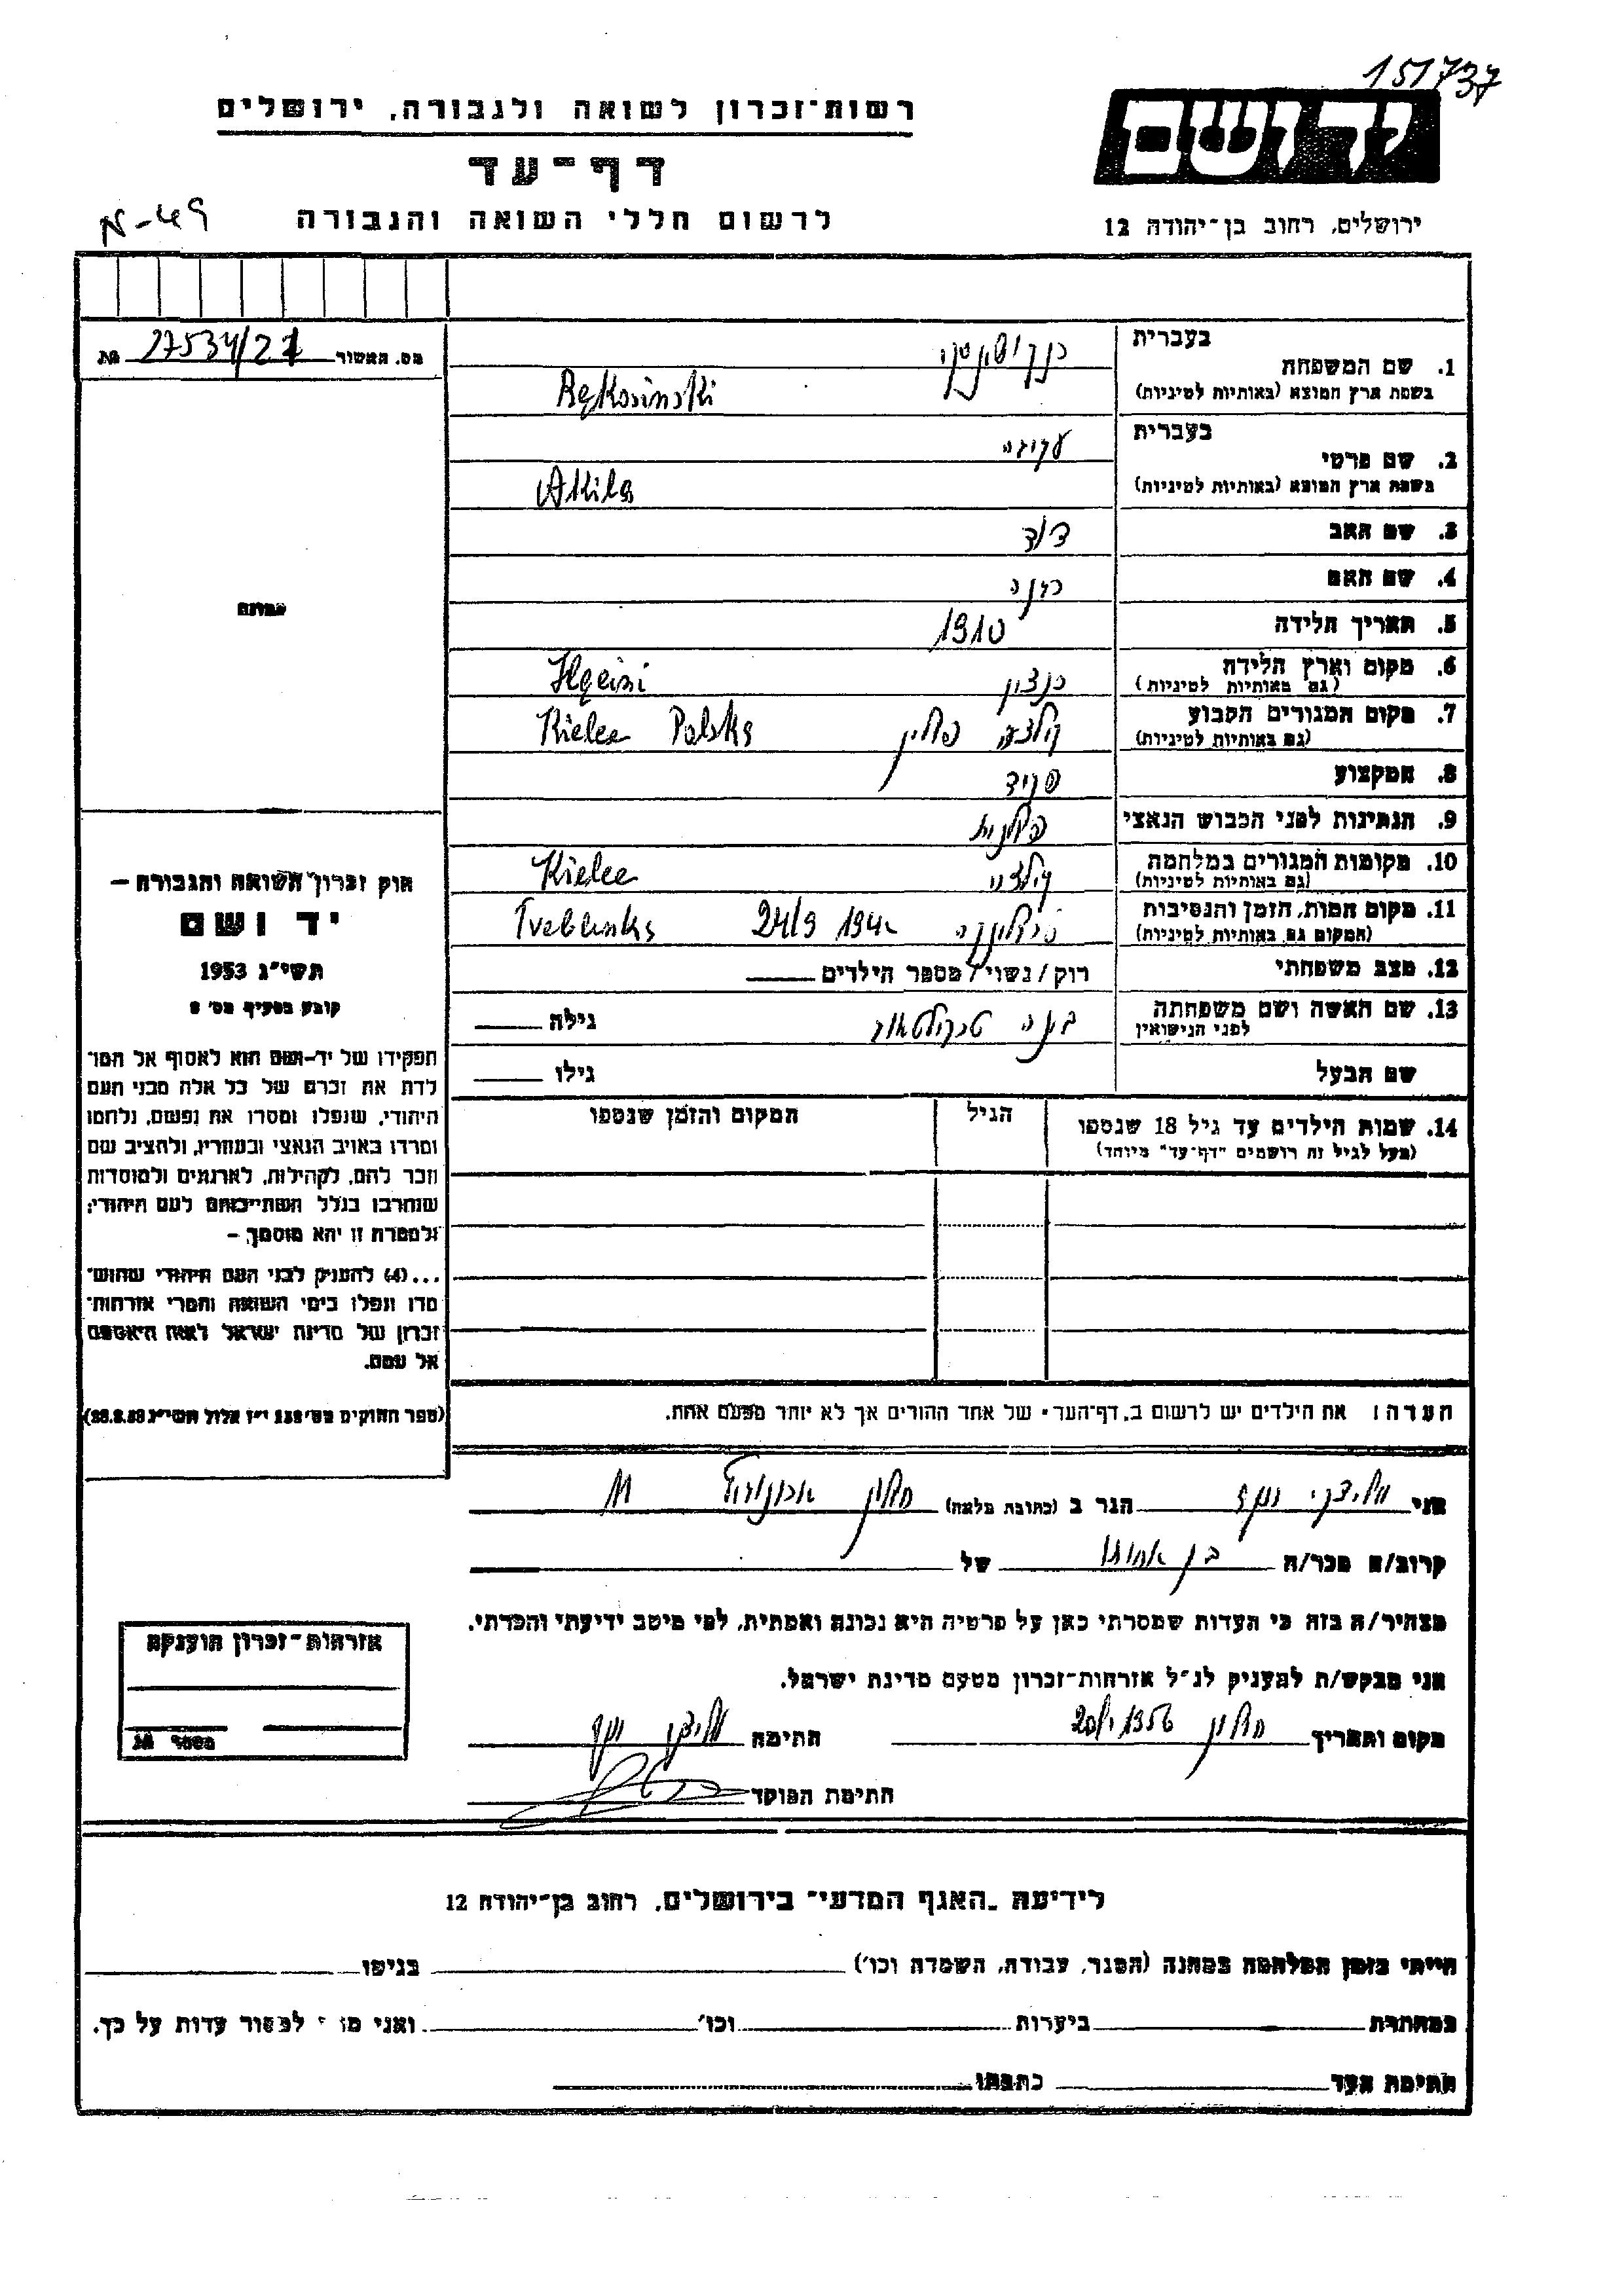 151737
רשות־זכרון לשואה ולגבורה, ירושלים
יד ושם
דף־עד
לרשום חללי השואה והגבורה
ירושלים, רחוב בן־יהודה 12
מס. האשור 27534/27 №
1. שם המשפחה
בעברית
בשפת ארץ המוצא (באותיות לטיניות) Rękosinski
2. שם פרטי
בעברית
בשפת ארץ המוצא (באותיות לטיניות) Akiba
3. שם האב דוד
4. שם האם
5. תאריך הלידה 1910
6. מקום וארץ הלידה
(גם באותיות לטיניות)
7. מקום המגורים הקבוע קילצה פולין Kielce Polska
(גם באותיות לטיניות)
8. המקצוע
9. הנתינות לפני הכבוש הנאצי פולנית
10. מקומות המגורים במלחמה קילצה Kielce
(גם באותיות לטיניות)
11. מקום המות, הזמן והנסיבות טרבלינקה 24/9 1942 Treblinka
(המקום גם באותיות לטיניות)
12. מצב משפחתי רוק/נשוי/מספר הילדים
13. שם האשה ושם משפחתה
לפני הנישואין
גילה
שם הבעל גילו
14. שמות הילדים עד גיל 18 שנספו
(מעל לגיל זה רושמים "דף־עד" מיוחד)
הגיל
המקום והזמן שנספו
תמונה
חוק זכרון השואה והגבורה —
יד ושם
תשי"ג 1953
קובע בסעיף מס'
תפקידו של יד־ושם הוא לאסוף אל המו־
לדת את זכרם של כל אלה מבני העם
היהודי, שנפלו ומסרו את נפשם, נלחמו
ומרדו באויב הנאצי ובעוזריו, ולהציב שם
וזכר להם, לקהילות, לארגונים ולמוסדות
שנחרבו בגלל השתייכותם לעם היהודי;
ולמטרה זו יהא מוסמך, —
...(4) להעניק לבני העם היהודי שהוש־
מדו ונפלו בימי השואה והמרי אזרחות־
זכרון של מדינת ישראל לאות היאספם
אל עמם.
(ספר החוקים מס' 132 י"ז אלול תשי"ג 28.8.53)
הערה: את הילדים יש לרשום ב„דף־העד" של אחד ההורים אך לא יותר מפעם אחת.
אני הגר ב (כתובת מלאה) חולון
קרוב/ה מכר/ה בן של
מצהיר/ה בזה כי העדות שמסרתי כאן על פרטיה היא נכונה ואמתית, לפי מיטב ידיעתי והכרתי.
אני מבקש/ת להעניק לנ"ל אזרחות־זכרון מטעם מדינת ישראל.
מקום ותאריך חולון חתימה
חתימת הפוקד
אזרחות־זכרון הוענקה
מספר №
לידיעת „האגף המדעי" בירושלים, רחוב בן־יהודה 12
הייתי בזמן המלחמה במחנה (הסגר, עבודה, השמדה וכו') בגיטו
במחתרת ביערות וכו' ואני מו למסור עדות על כך.
חתימת העד כתבתו